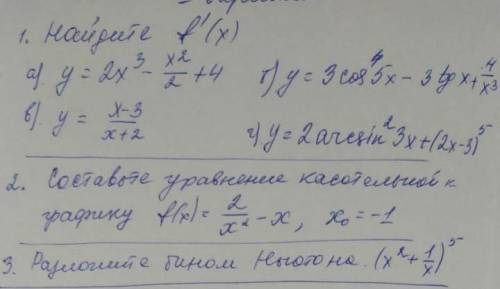 1. Найдите f'(x)
а) y = 2x³ - x²/2 + 4   б) y = 3cos⁴5x - 3tgx + 4/x³
в) y = (x-3)/(x+2)   г) y = 2arcsin²3x + (2x-3)⁵
2. Составьте уравнение касательной к
графику f(x) = 2/x² - x, x₀ = -1
3. Разложите бином Ньютона (x² + 1/x)⁵